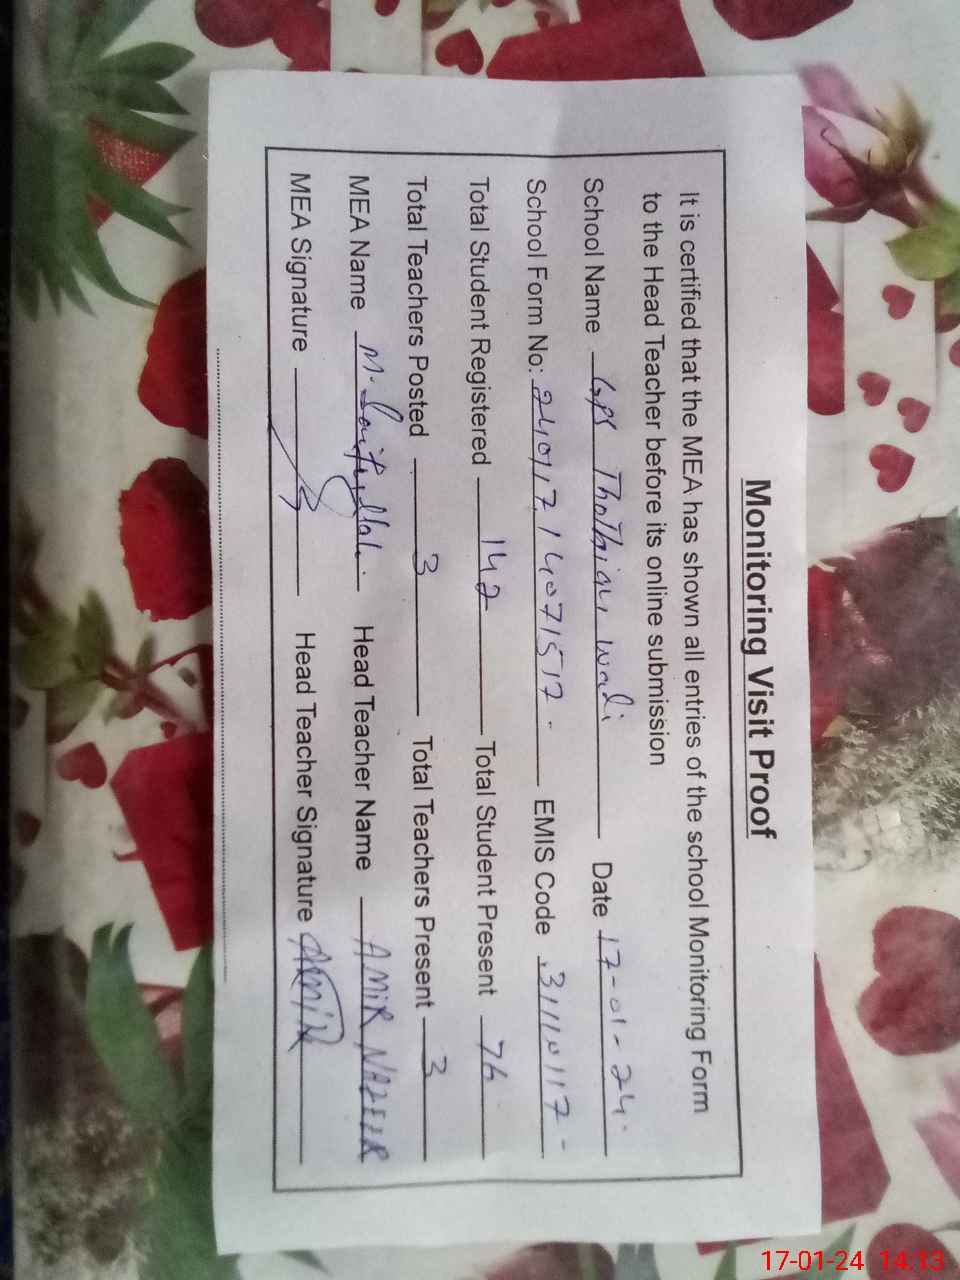 Monitoring Visit Proof
It is certified that the MEA has shown all entries of the school Monitoring Form
to the Head Teacher before its online submission
School Name GPS Thothian wali Date 17-01-24
School Form No: 24011714071517 EMIS Code 31110117
Total Student Registered 142 Total Student Present 76
Total Teachers Posted 3 Total Teachers Present 3
MEA Name M. Head Teacher Name AMIR NAZEER
MEA Signature Head Teacher Signature AMIR
17-01-24 14:13